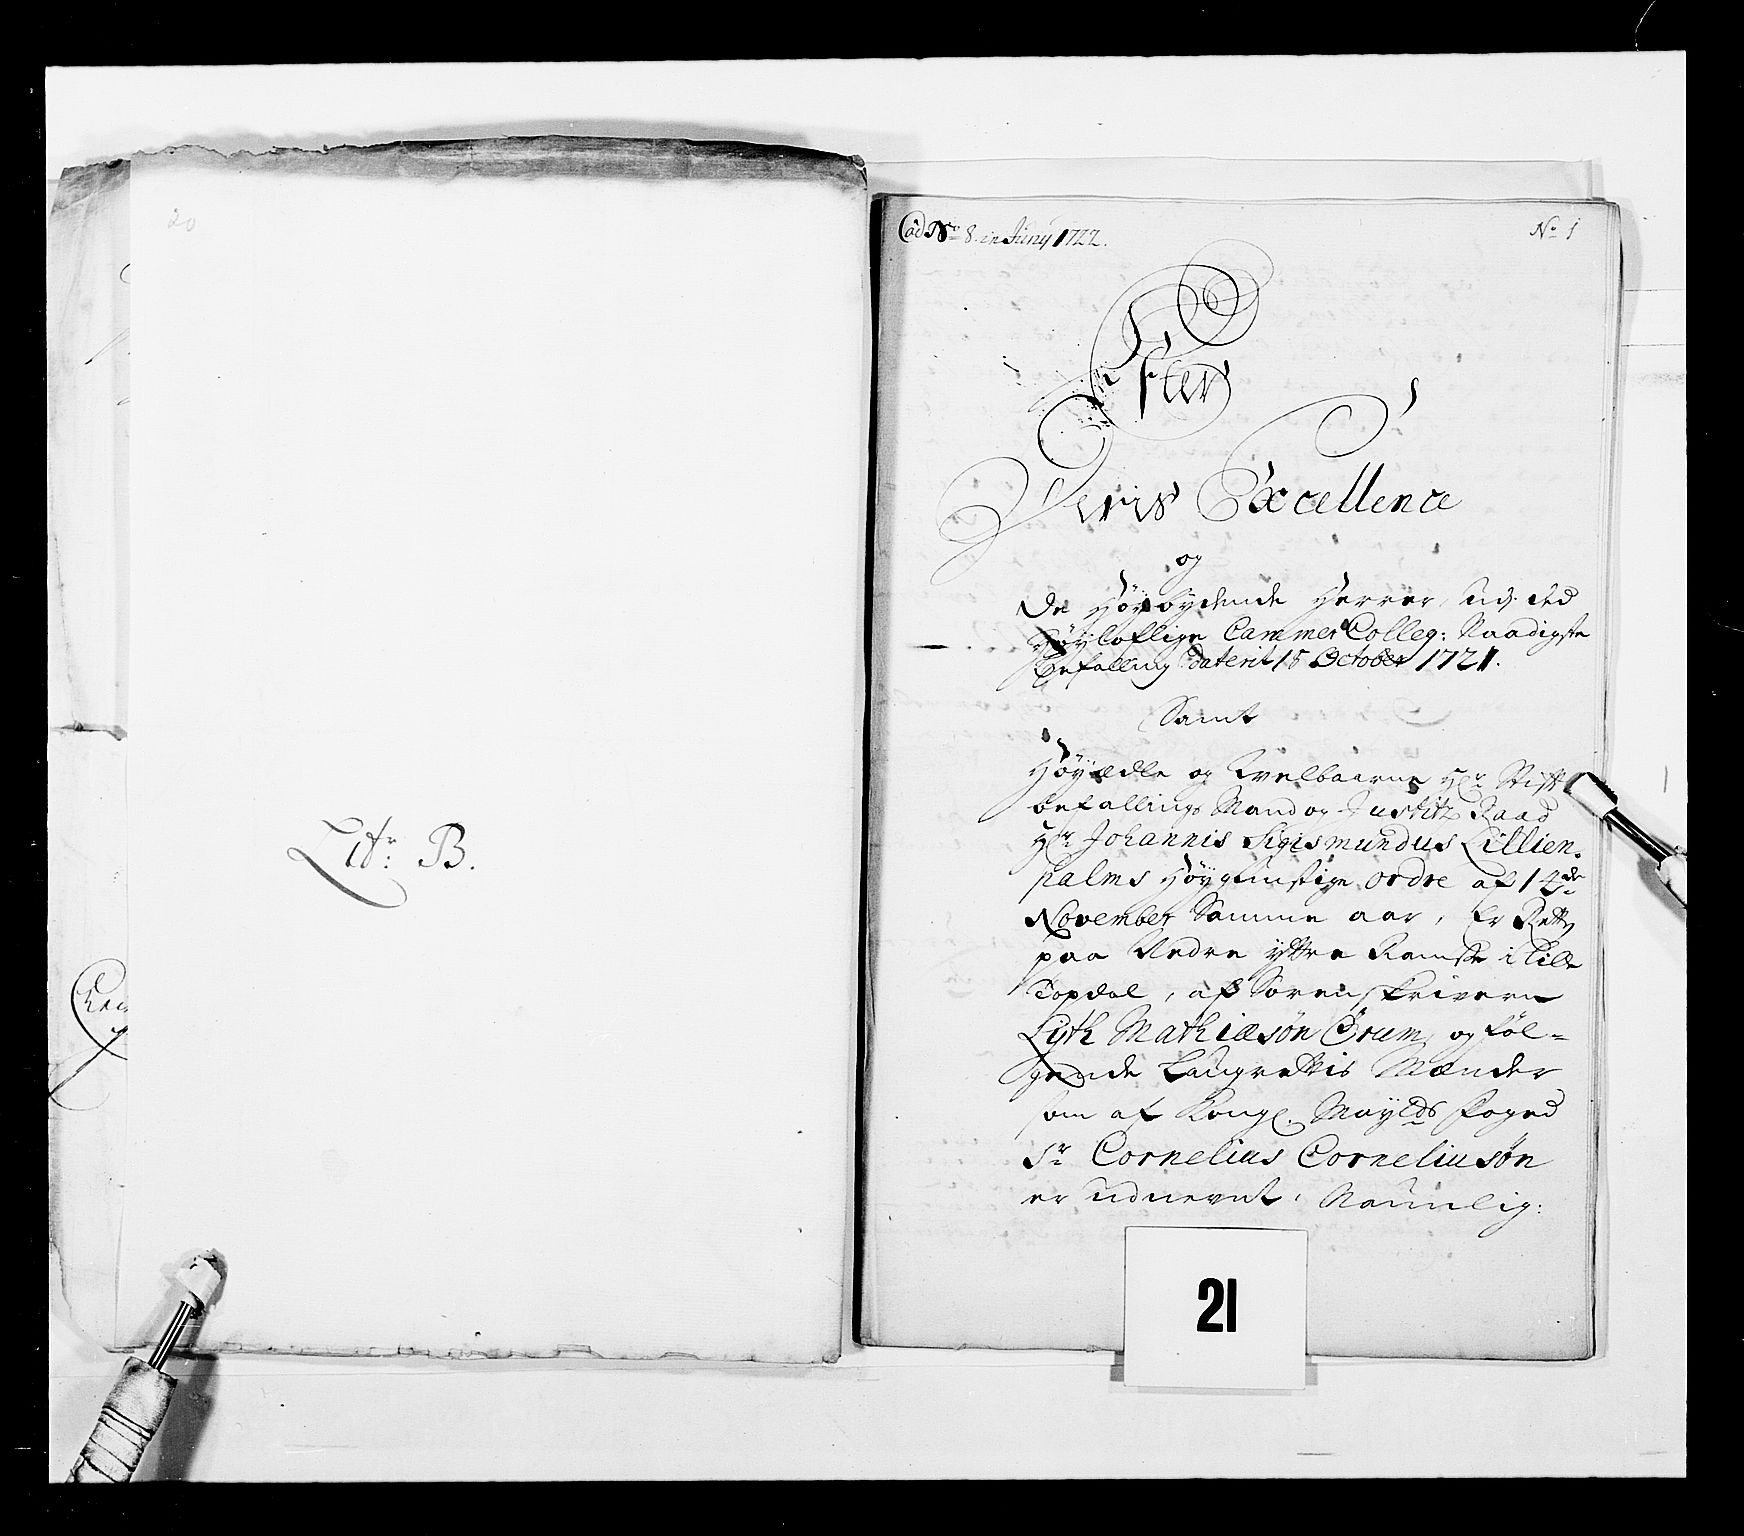 20
Litr: B.
Cad No 8 in Juny 1722.
No 1
Efter
Deris Excellence
og
De Høybydende Herrer, Udj ded
Høyloflige Cammer Colleg: Naadigste
befalling daterit 15 October 1721.
Samt
Høyædle og Welbaarne Hr Stift
befallings Mand og Justitz Raad
Hr Johannis Sigismundus Lillien-
palms Høygunstige ordre af 14de
November Samme aar, Er Rett
paa Nedre yttre Ramse i Lille
Topdal, af Sorenskriveren
Lyth Mathiæsøn Ørum, og føl=
gende Laugrettis Mænder
som af Kongl. Mayts foged
Sr Cornelius Corneliusøn
er udnevnt, Naunlig:
21